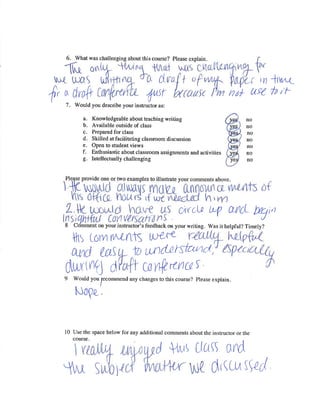 6. What was challenging about this course? Please explain.
The only thing that was challenging for
me was writing a draft of my paper in time
for a draft conference just because I'm not use to it
7. Would you describe your instructor as:
a. Knowledgeable about teaching writing yes no
b. Available outside of class yes no
c. Prepared for class yes no
d. Skilled at facilitating classroom discussion yes no
e. Open to student views yes no
f. Enthusiastic about classroom assignments and activities yes no
g. Intellectually challenging yes no
Please provide one or two examples to illustrate your comments above.
1. He would always make announcements of
his office hours if we needed him
2. He would have us circle up and begin
insightful conversations.
8 Comment on your instructor's feedback on your writing. Was it helpful? Timely?
His comments were really helpful
and easy to understand, especially
during draft conferences.
9 Would you recommend any changes to this course? Please explain.
Nope.
10 Use the space below for any additional comments about the instructor or the
course.
I really enjoyed this class and
the subject matter we discussed.